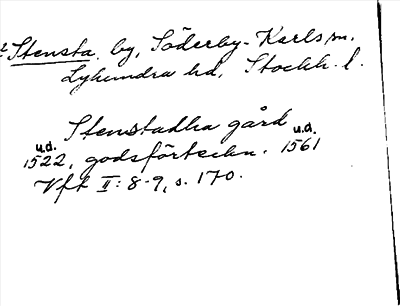 2 Stensta by, Söderby-Karls sn,
Lyhundra hd, Stockh. l.
Stenstadha gård
u.d. u.d.
1522, godsförteckn. 1561
Vft II: 8-9, s. 170.